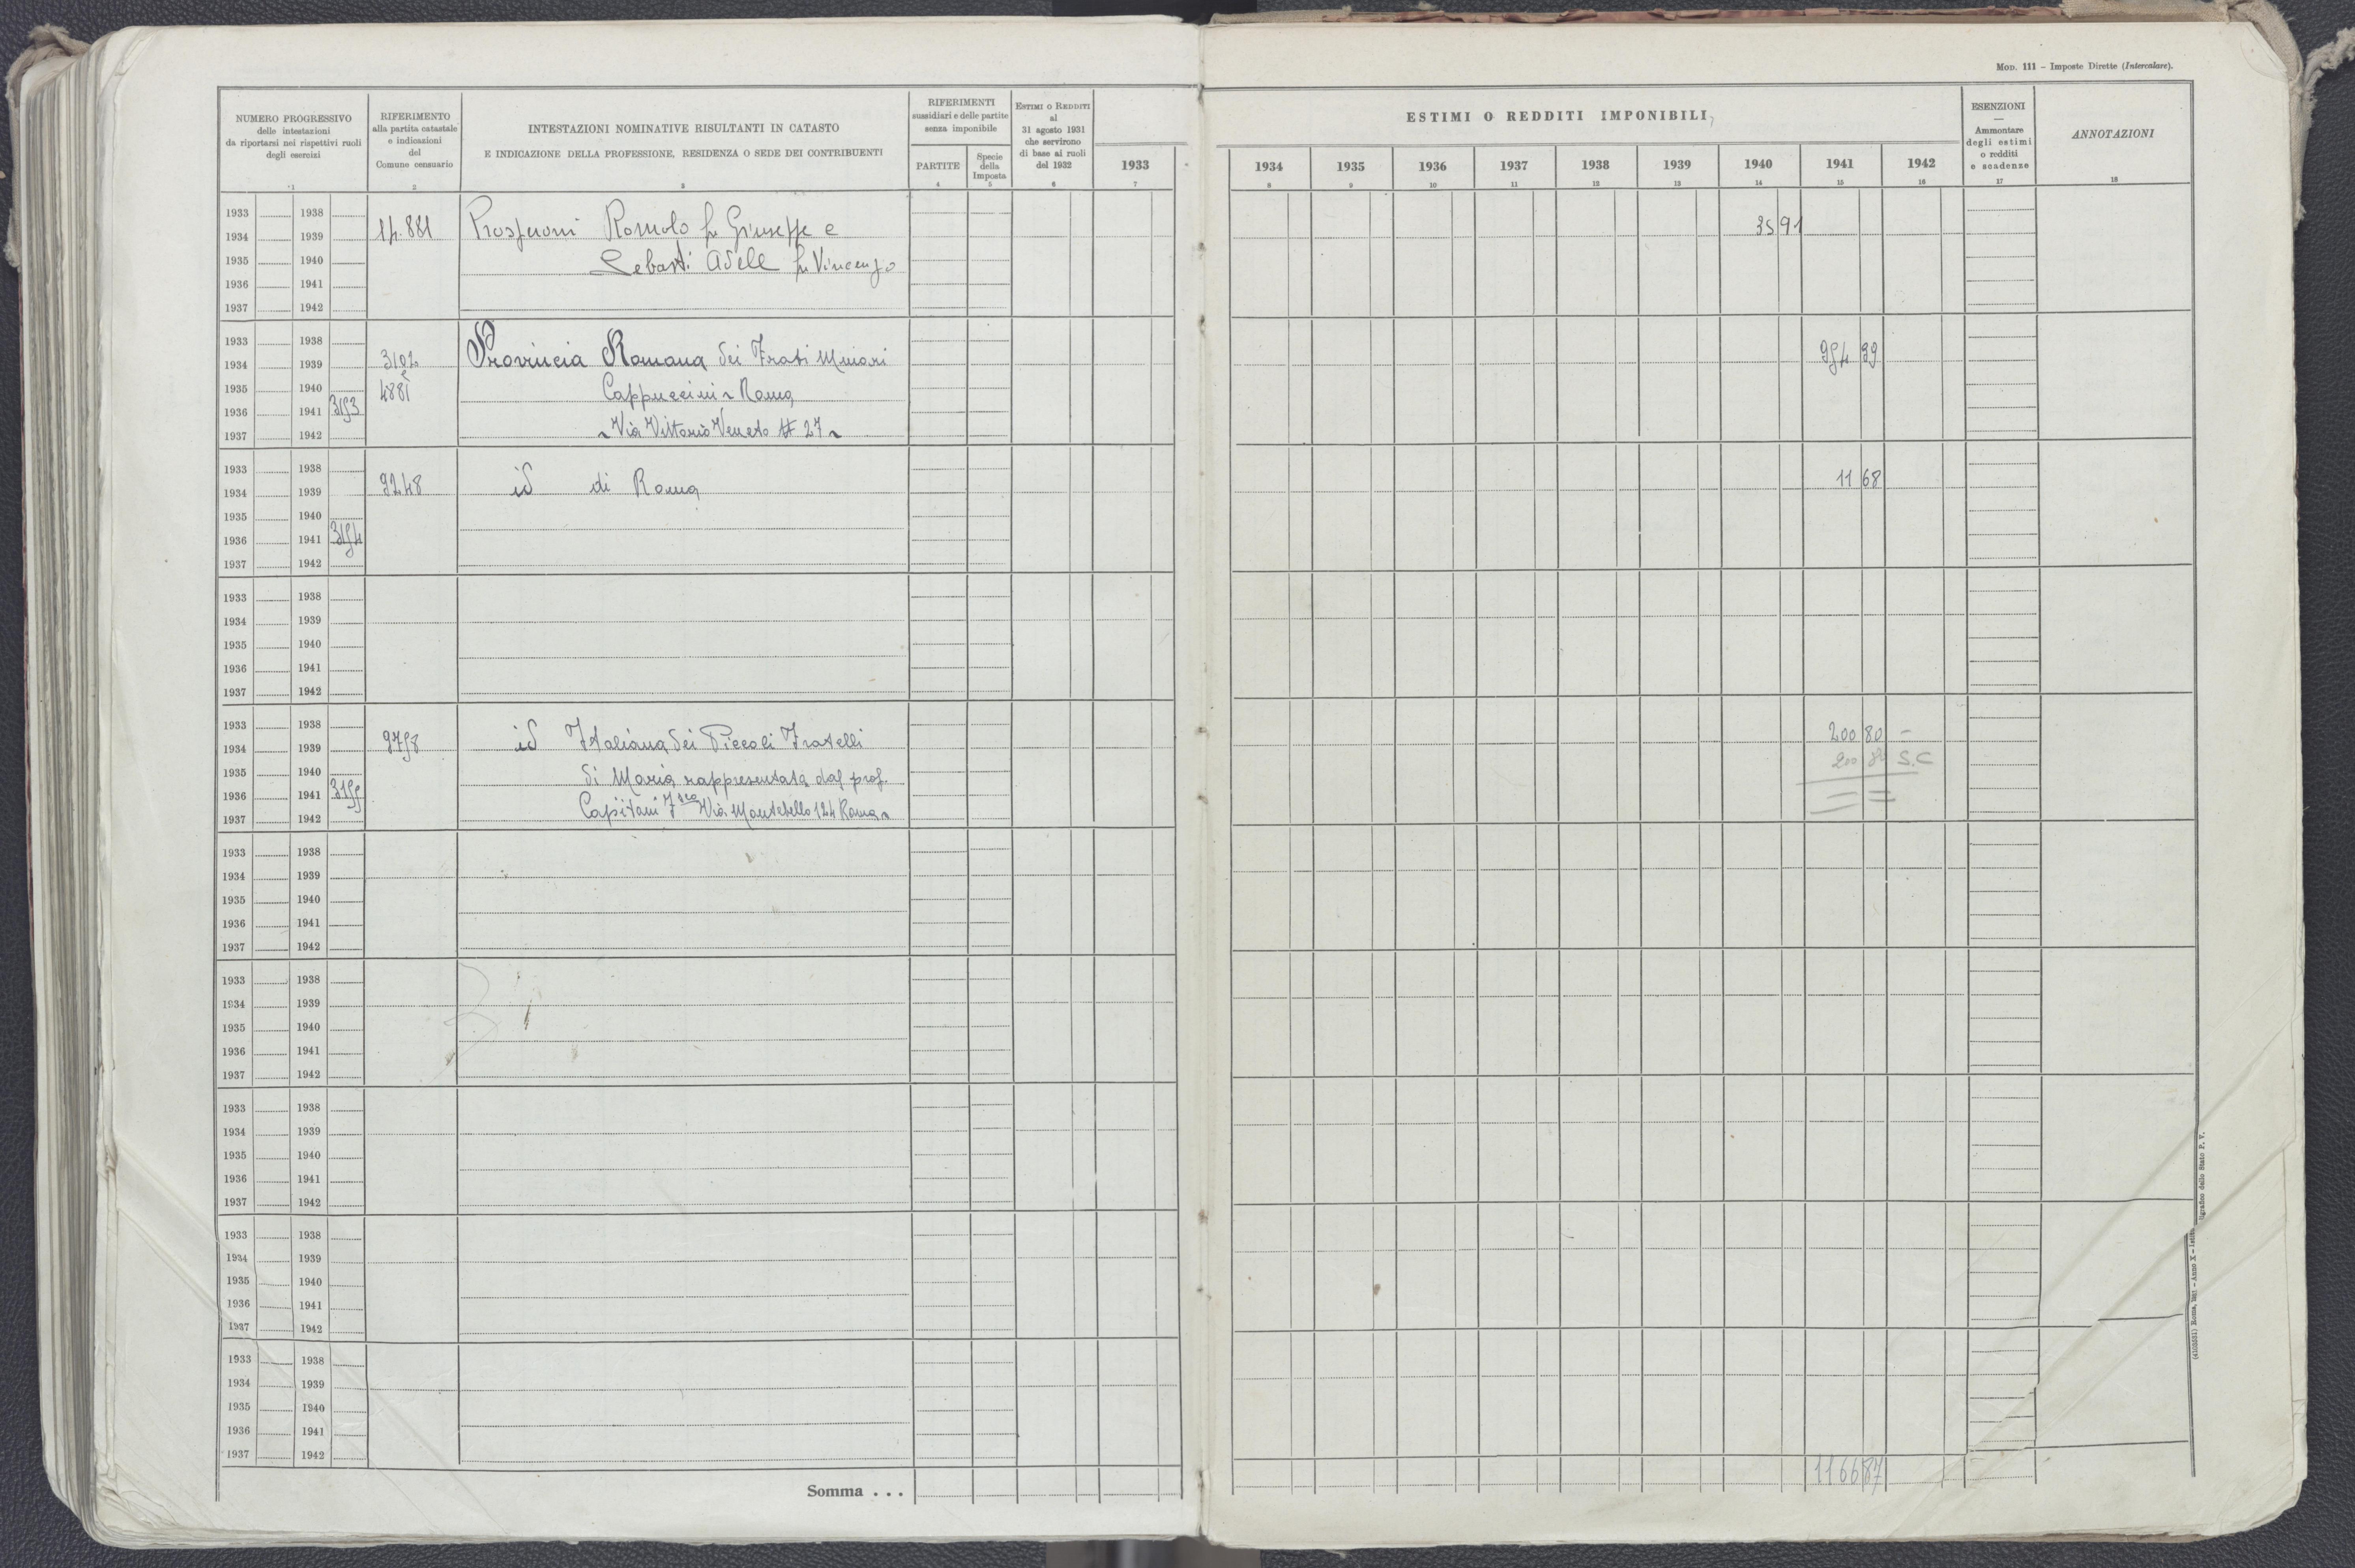 Mod. 111 – Imposte Dirette (Intercalare).
NUMERO PROGRESSIVO
delle intestazioni
da riportarsi nei rispettivi ruoli
degli esercizi
1
RIFERIMENTO
alla partita catastale
e indicazioni
del
Comune censuario
2
INTESTAZIONI NOMINATIVE RISULTANTI IN CATASTO
E INDICAZIONE DELLA PROFESSIONE, RESIDENZA O SEDE DEI CONTRIBUENTI
3
RIFERIMENTI
sussidiari e delle partite
senza imponibile
PARTITE
4
Specie
della
Imposta
5
Estimi o Redditi
al
31 agosto 1931
che servirono
di base ai ruoli
del 1932
6
ESTIMI O REDDITI IMPONIBILI
1933 1934 1935 1936 1937 1938 1939 1940 1941 1942
7 8 9 10 11 12 13 14 15 16
ESENZIONI
—
Ammontare
degli estimi
o redditi
e scadenze
17
ANNOTAZIONI
18
1933 1938
1934 1939 881 Romolo fu Giuseppe e 35 91
1935 1940 Adele fu Vincenzo
1936 1941
1937 1942
1933 1938
1934 1939 3102 Provincia Romana dei Frati Minori 954 39
1935 1940 e 4881 Cappuccini - Roma
1936 1941 3153
1937 1942 - Via Vittorio Veneto # 27 -
1933 1938
1934 1939 9248 id di Roma 11 68
1935 1940
1936 1941 3154
1937 1942
1933 1938
1934 1939
1935 1940
1936 1941
1937 1942
1933 1938
1934 1939 9758 id Italiana dei Piccoli Fratelli 200 80 –
1935 1940 di Maria rappresentata dal prof. 200 80 S.C
1936 1941 3155 Capitani F.sco Via Montebello 124 Roma -
1937 1942
1933 1938
1934 1939
1935 1940
1936 1941
1937 1942
1933 1938
1934 1939
1935 1940
1936 1941
1937 1942
1933 1938
1934 1939
1935 1940
1936 1941
1937 1942
1933 1938
1934 1939
1935 1940
1936 1941
1937 1942
1933 1938
1934 1939
1935 1940
1936 1941
1937 1942
Somma . . . 1166 87